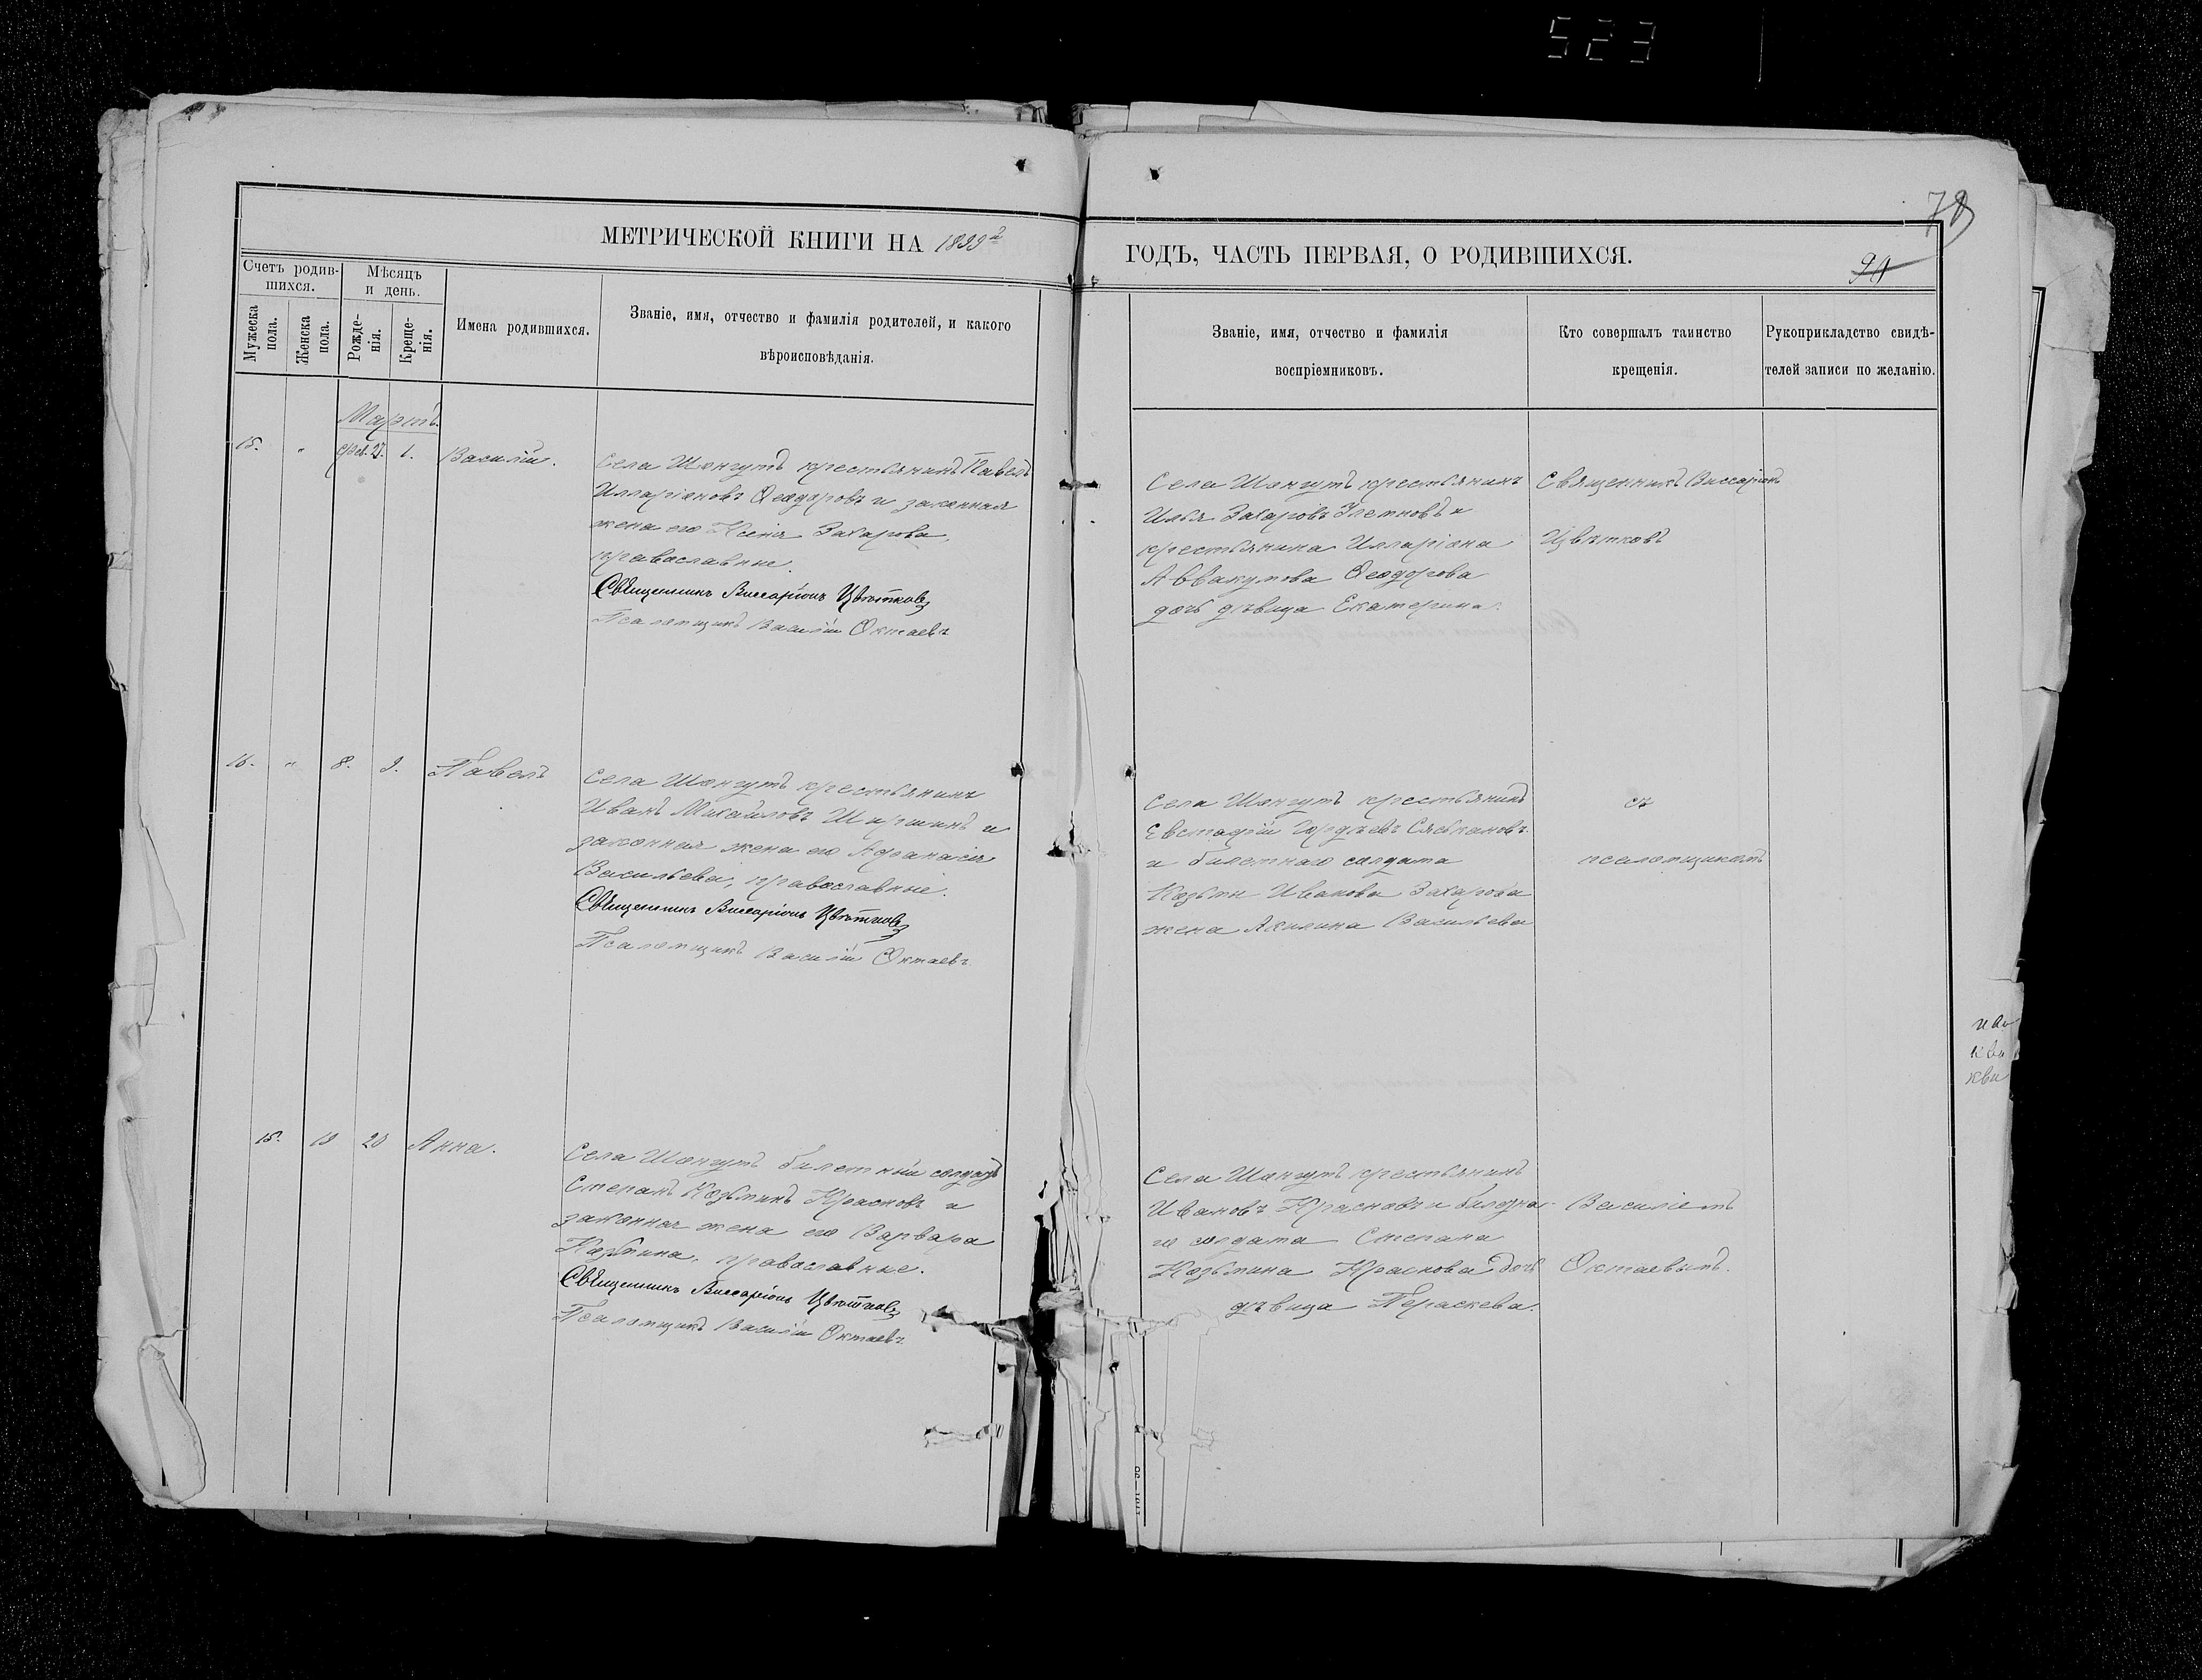 523
78
МЕТРИЧЕСКОЙ КНИГИ НА 1899 г
ГОДЪ, ЧАСТЬ ПЕРВАЯ, О РОДИВШИХСЯ.
Счетъ родив-
шихся.
Мѣсяцъ
и день.
Мужеска
пола.
Женска
пола.
Рожде-
нія.
Креще-
нія.
Имена родившихся.
Званіе, имя, отчество и фамилія родителей, и какого
вѣроисповѣданія.
Званіе, имя, отчество и фамилія
воспріемниковъ.
Кто совершалъ таинство
крещенія.
Рукоприкладство свидѣ-
телей записи по желанію.
Мартъ.
15. " фев. 27. 1. Василій.
Села Шонгутъ крестьянинъ Павелъ
Илларіоновъ Ѳеодоровъ и законная
жена его Ксенія Захарова,
православные.
Священникъ Виссаріонъ Цвѣтковъ
Псаломщикъ Василій Октаевъ
Села Шонгутъ крестьянинъ
Илья Захаровъ и
крестьянина Илларіона
Аввакумова Ѳеодорова
дочь дѣвица Екатерина.
Священникъ Виссаріонъ
Цвѣтковъ
16. " 8. 9. Павелъ
Села Шонгутъ крестьянинъ
Иванъ Михайловъ Ширшинъ и
законная жена его Аѳанасія
Васильева, православные.
Священникъ Виссаріонъ Цвѣтковъ
Псаломщикъ Василій Октаевъ
Села Шонгутъ крестьянинъ
Евстафій Гордѣевъ
и билетнаго солдата
Козьмы Иванова Захарова
жена Акилина Васильева
съ
псаломщикомъ
15. 19 20 Анна.
Села Шонгутъ билетный солдатъ
Степанъ Козьминъ Красновъ и
законная жена его Варвара
Козьмина, православные.
Священникъ Виссаріонъ Цвѣтковъ
Псаломщикъ Василій Октаевъ
Села Шонгутъ крестьянинъ
Ивановъ Красновъ и билетна-
го солдата Степана
Козьмина Краснова дочь
дѣвица Параскева.
Василіемъ
Октаевымъ.